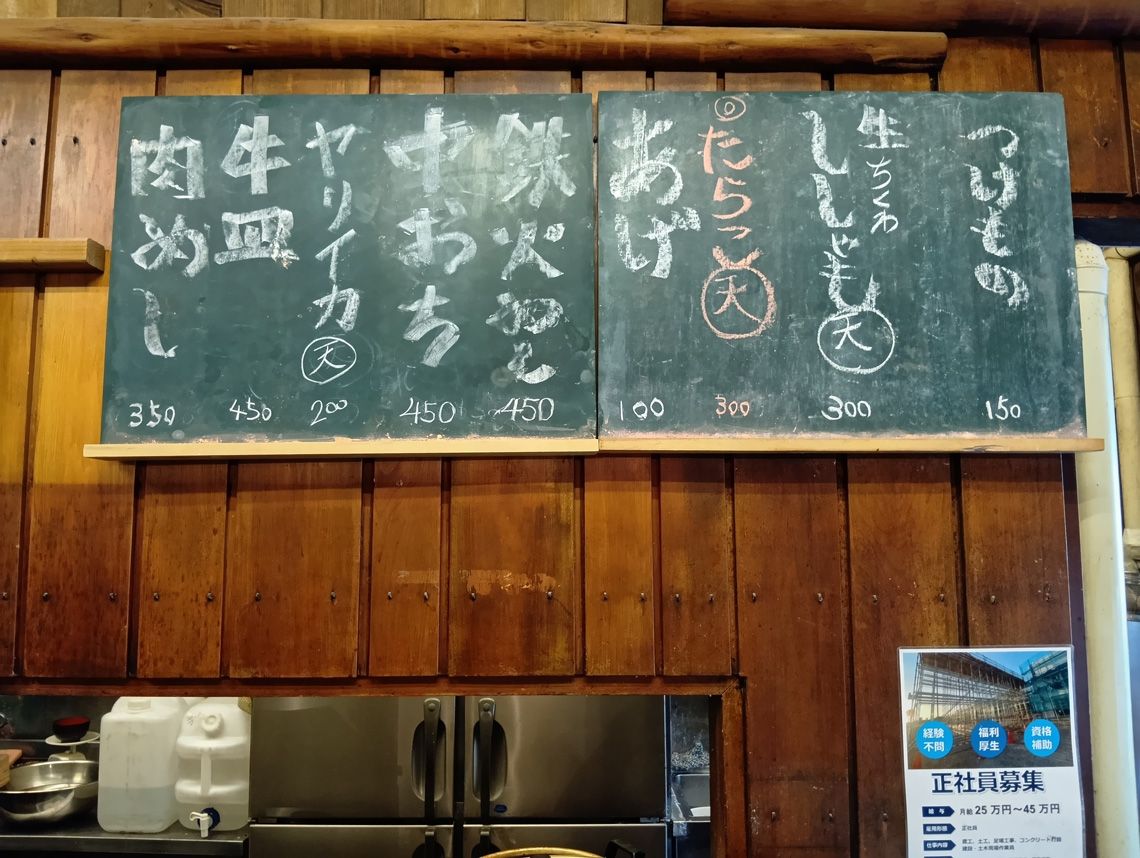 つけもの
150
生ちくわ
ししゃも 天
300
◎たらっと 天
300
あげ
100
鉄火
450
中おち
450
ヤリイカ 天
200
牛皿
450
肉めし
350
経験
不問
福利
厚生
資格
補助
正社員募集
給与 月給25万円～45万円
雇用形態 正社員
仕事内容 鳶工、土工、足場工事、コンクリート打設
建設・土木現場作業員